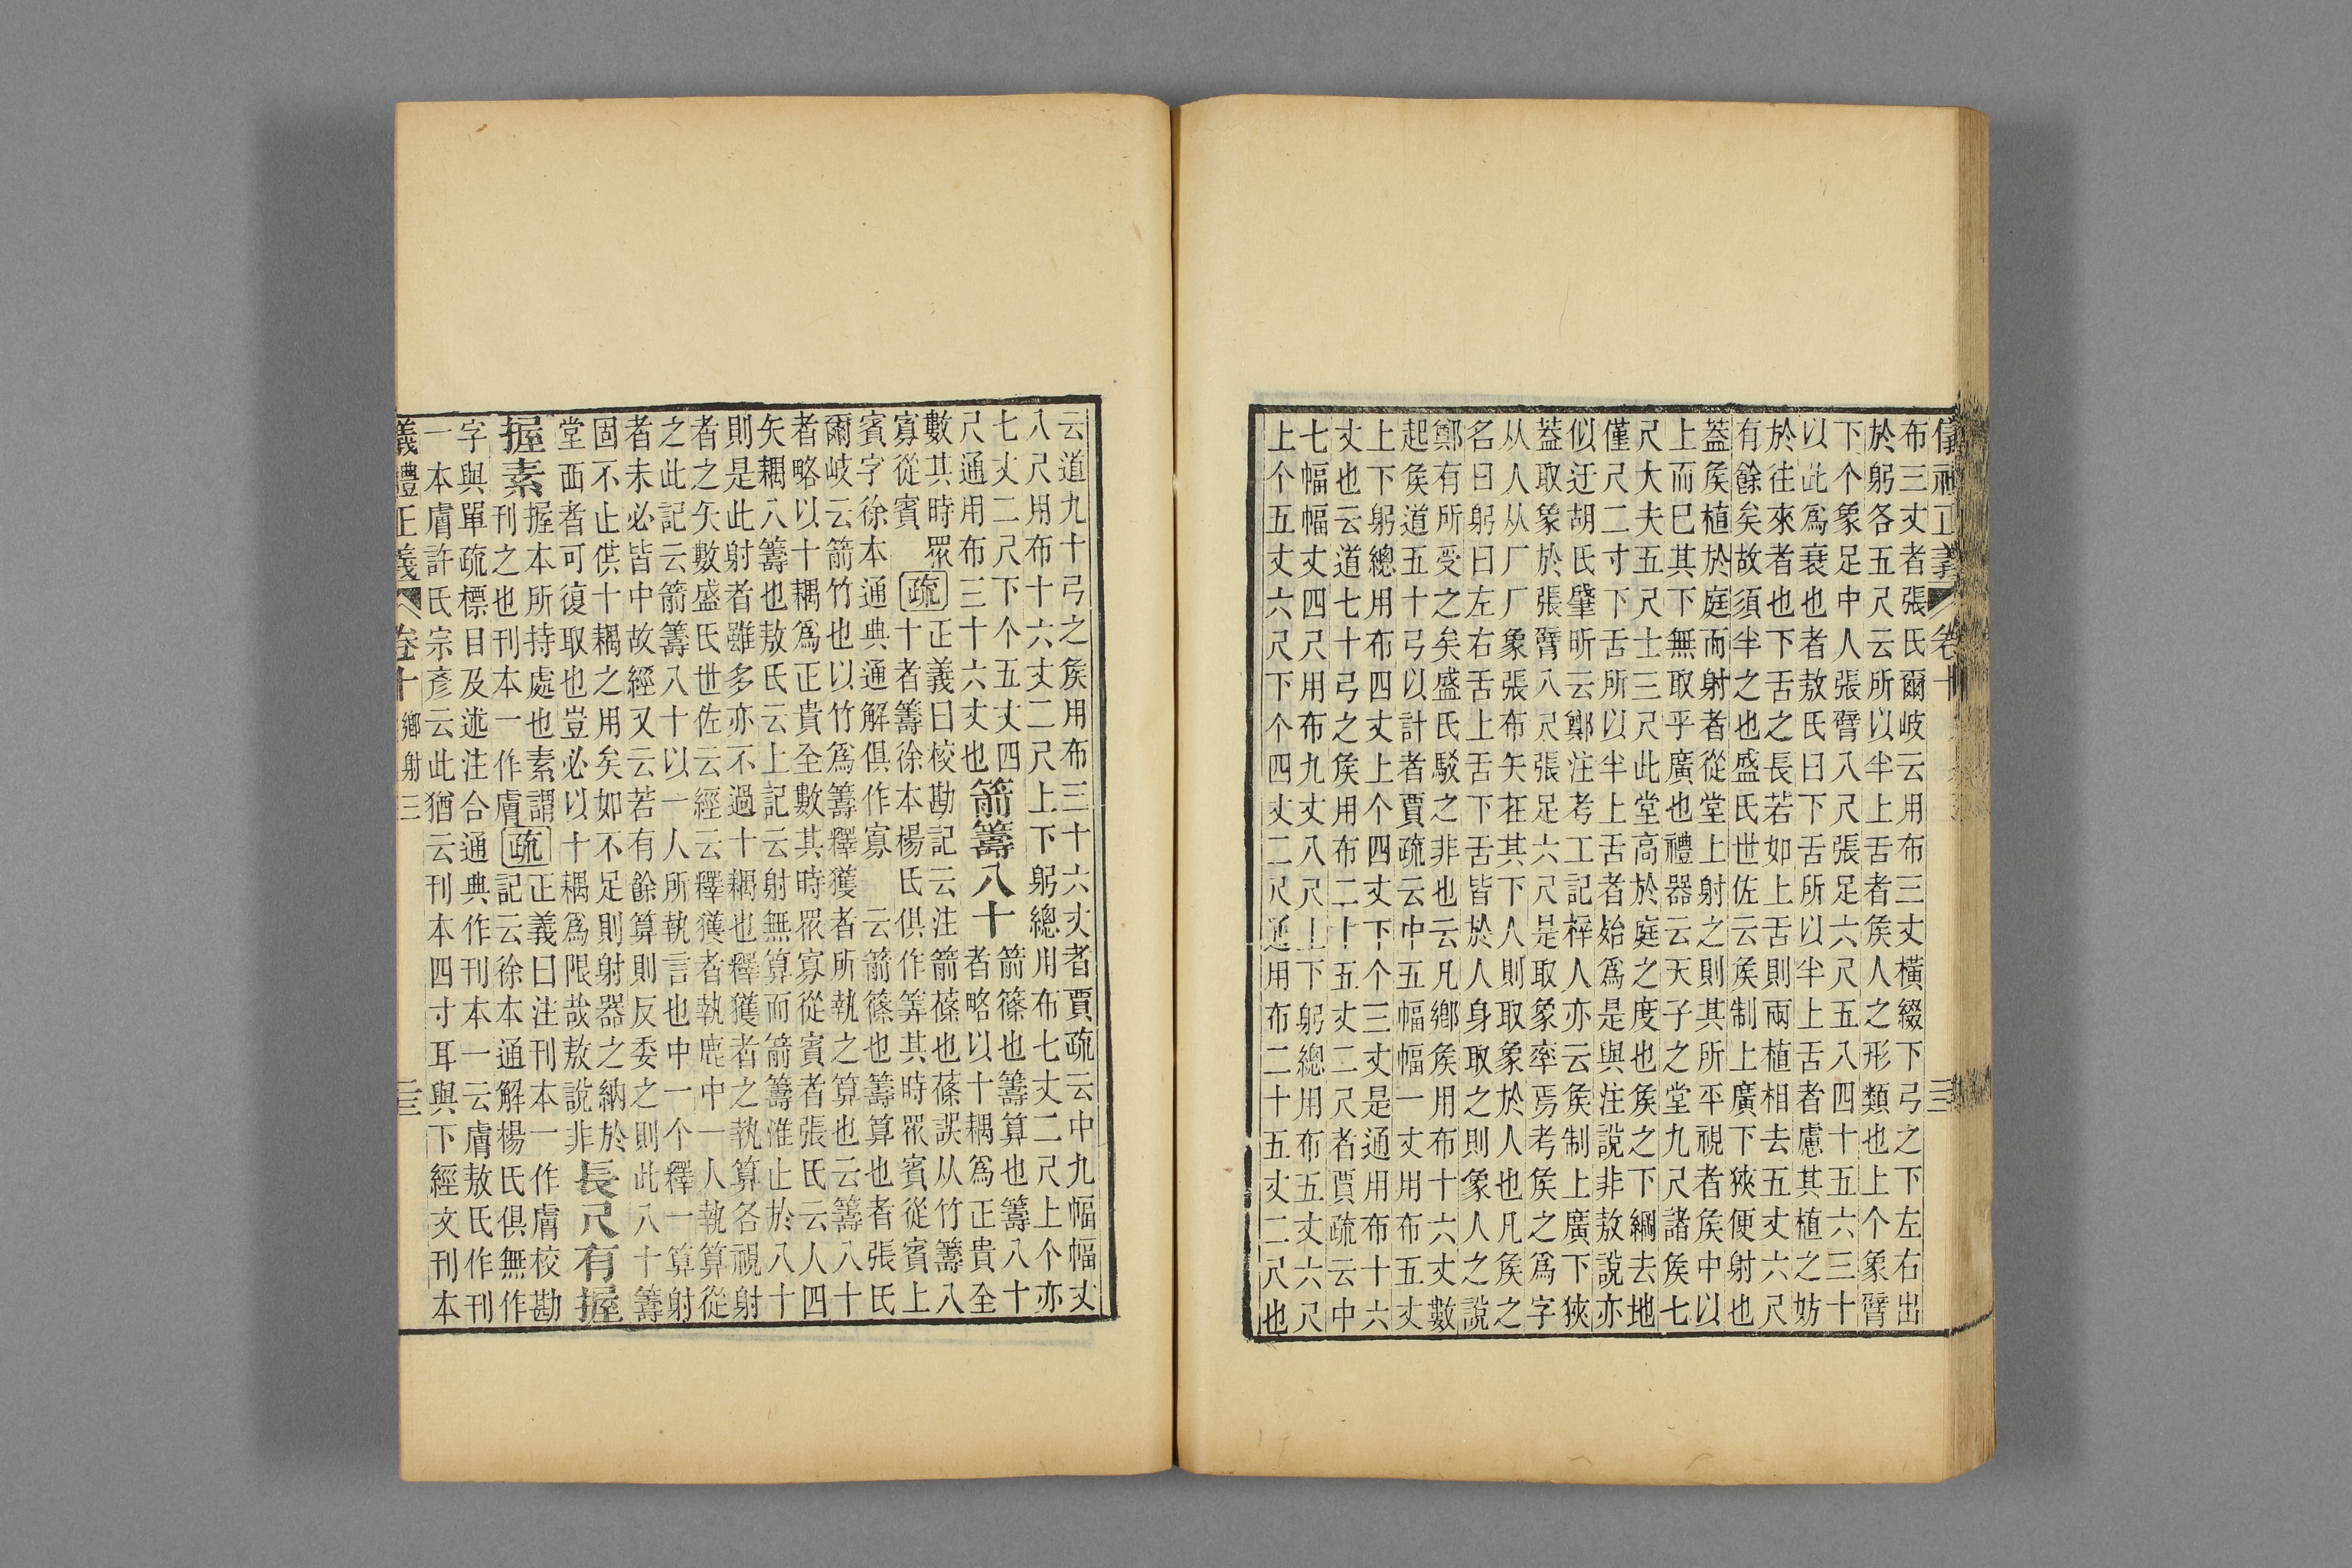 儀禮正義　卷十
布三丈者張氏爾岐云用布三丈橫綴下弓之下左右出
於躬各五尺云所以半上舌者矦人之形類也上个象臂
下个象足中人張臂八尺張足六尺五八四十五六三十
以此爲衰也者敖氏曰下舌所以半上舌者慮其植之妨
於往來者也下舌之長若如上舌則兩植相去五丈六尺
有餘矣故須半之也盛氏世佐云矦制上廣下狹便射也
蓋矦植於庭而射者從堂上射之則其所平視者矦中以
上而已其下無取乎廣也禮器云天子之堂九尺諸矦七
尺大夫五尺士三尺此堂高於庭之度也矦之下綱去地
僅尺二寸下舌所以半上舌者始爲是與注說非敖說亦
似迂胡氏肈昕云鄭注考工記梓人亦云矦制上廣下狹
蓋取象於張臂八尺張足六尺是取象率焉考矦之爲字
从人从厂厂象張布矢在其下人則取象於人也凡矦之
名曰躬曰左右舌上舌下舌皆於人身取之則象人之說
鄭有所受之矣盛氏駁之非也云凡鄉矦用布十六丈數
起矦道五十弓以計者賈疏云中五幅幅一丈用布五丈
上下躬總用布四丈上个四丈下个三丈是通用布十六
丈也云道七十弓之矦用布二十五丈二尺者賈疏云中
七幅幅丈四尺用布九丈八尺上下躬總用布五丈六尺
上个五丈六尺下个四丈二尺通用布二十五丈二尺也
云道九十弓之矦用布三十六丈者賈疏云中九幅幅丈
八尺用布十六丈二尺上下躬總用布七丈二尺上个亦
七丈二尺下个五丈四
尺通用布三十六丈也
箭籌八十
箭篠也籌算也籌八十
者略以十耦爲正貴全
數其時眾
寡從賓
疏
正義曰校勘記云注箭篠也篠誤从竹籌八
十者籌徐本楊氏俱作筭其時眾賓從賓上
賓字徐本通典通解俱作寡　云箭篠也籌算也者張氏
爾岐云箭竹也以竹爲籌釋獲者所執之算也云籌八十
者略以十耦爲正貴全數其時眾寡從賓者張氏云人四
矢耦八籌也敖氏云上記云射無算而箭籌惟止於八十
則是此射者雖多亦不過十耦也釋獲者之執算各視射
者之矢數盛氏世佐云經云釋獲者執鹿中一人執算從
之此記云箭籌八十以一人所執言也中一个釋一算射
者未必皆中故經又云若有餘算則反委之則此八十籌
固不止供十耦之用矣如不足則射器之納於
堂西者可復取也豈必以十耦爲限哉敖說非
長尺有握
握素
握本所持處也素謂
刊之也刊本一作膚
疏
正義曰注刊本一作膚校勘
記云徐本通解楊氏俱無作
字與單疏標目及述注合通典作刊本一云膚敖氏作刊
一本膚許氏宗彥云此猶云刊本四寸耳與下經文刊本
儀禮正義　卷十　鄉射三